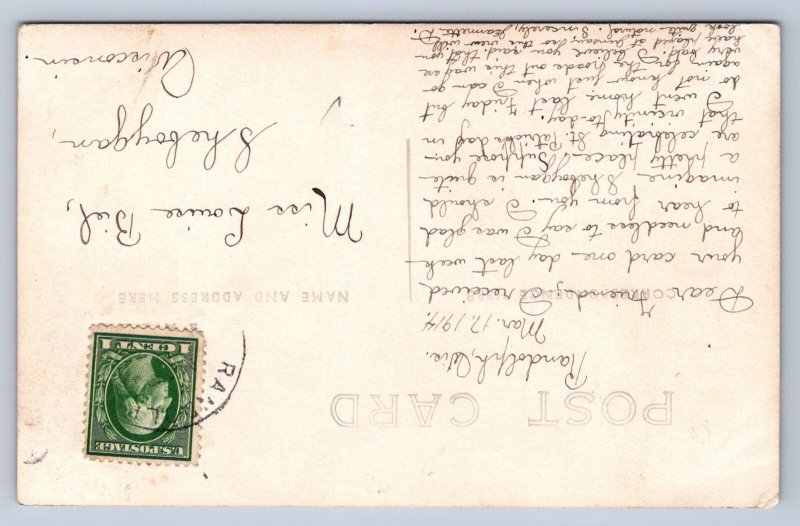 POST CARD
Randolph, Wis.
Mar. 17, 1914.
CORRESPONDENCE HERE
Dear Friend;- I received
your card one day last week
and needless to say I was glad
to hear from you. I should
imagine Sheboygan is quite
a pretty place. Suppose you
are celebrating St. Patricks day in
that vicinity to-day.
I went home last Friday but
do not know just when I can go
again for the roads out this way are
very bad. I believe you said that you
have played at Juneau, so this view will
look quite natural. Sincerely, Jeannette D.
NAME AND ADDRESS HERE
Miss Louise Biel,
Sheboygan,
Wisconsin.
U.S. POSTAGE
1 CENT 1
RAN